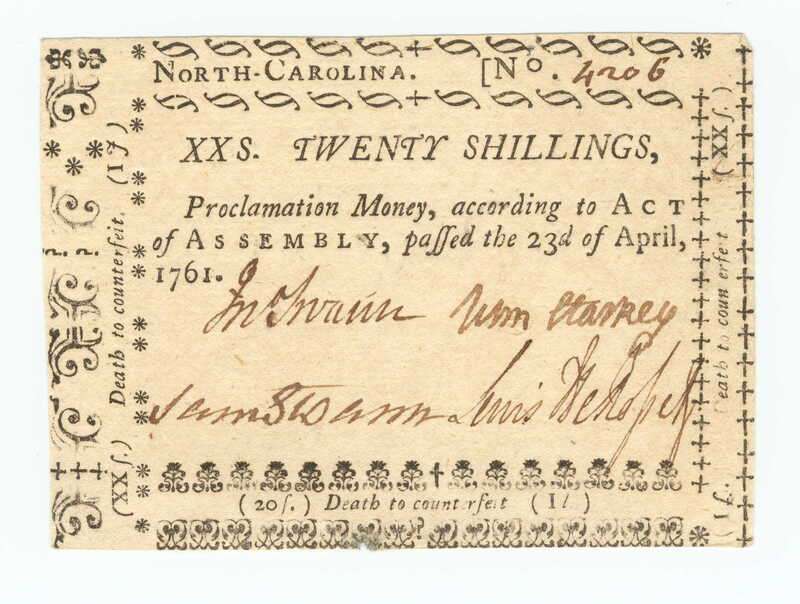 NORTH-CAROLINA. [No. 4206
XXS. TWENTY SHILLINGS,
Proclamation Money, according to ACT
of ASSEMBLY, paſſed the 23d of April,
1761.
Jno Swann Jno Starkey
Sam Swann Lewis DeRosset
(20ſ.) Death to counterfeit (1l.)
(XXſ.) Death to counterfeit, (1l)
(1l.) Death to counterfeit (XXſ.)